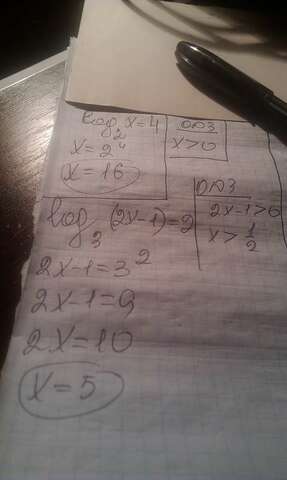 log₂ X = 4
X = 2⁴
X = 16
ОДЗ
X > 0
log₃ (2X-1) = 2
2X-1 = 3²
2X-1 = 9
2X = 10
X = 5
ОДЗ
2X-1 > 0
X > 1/2